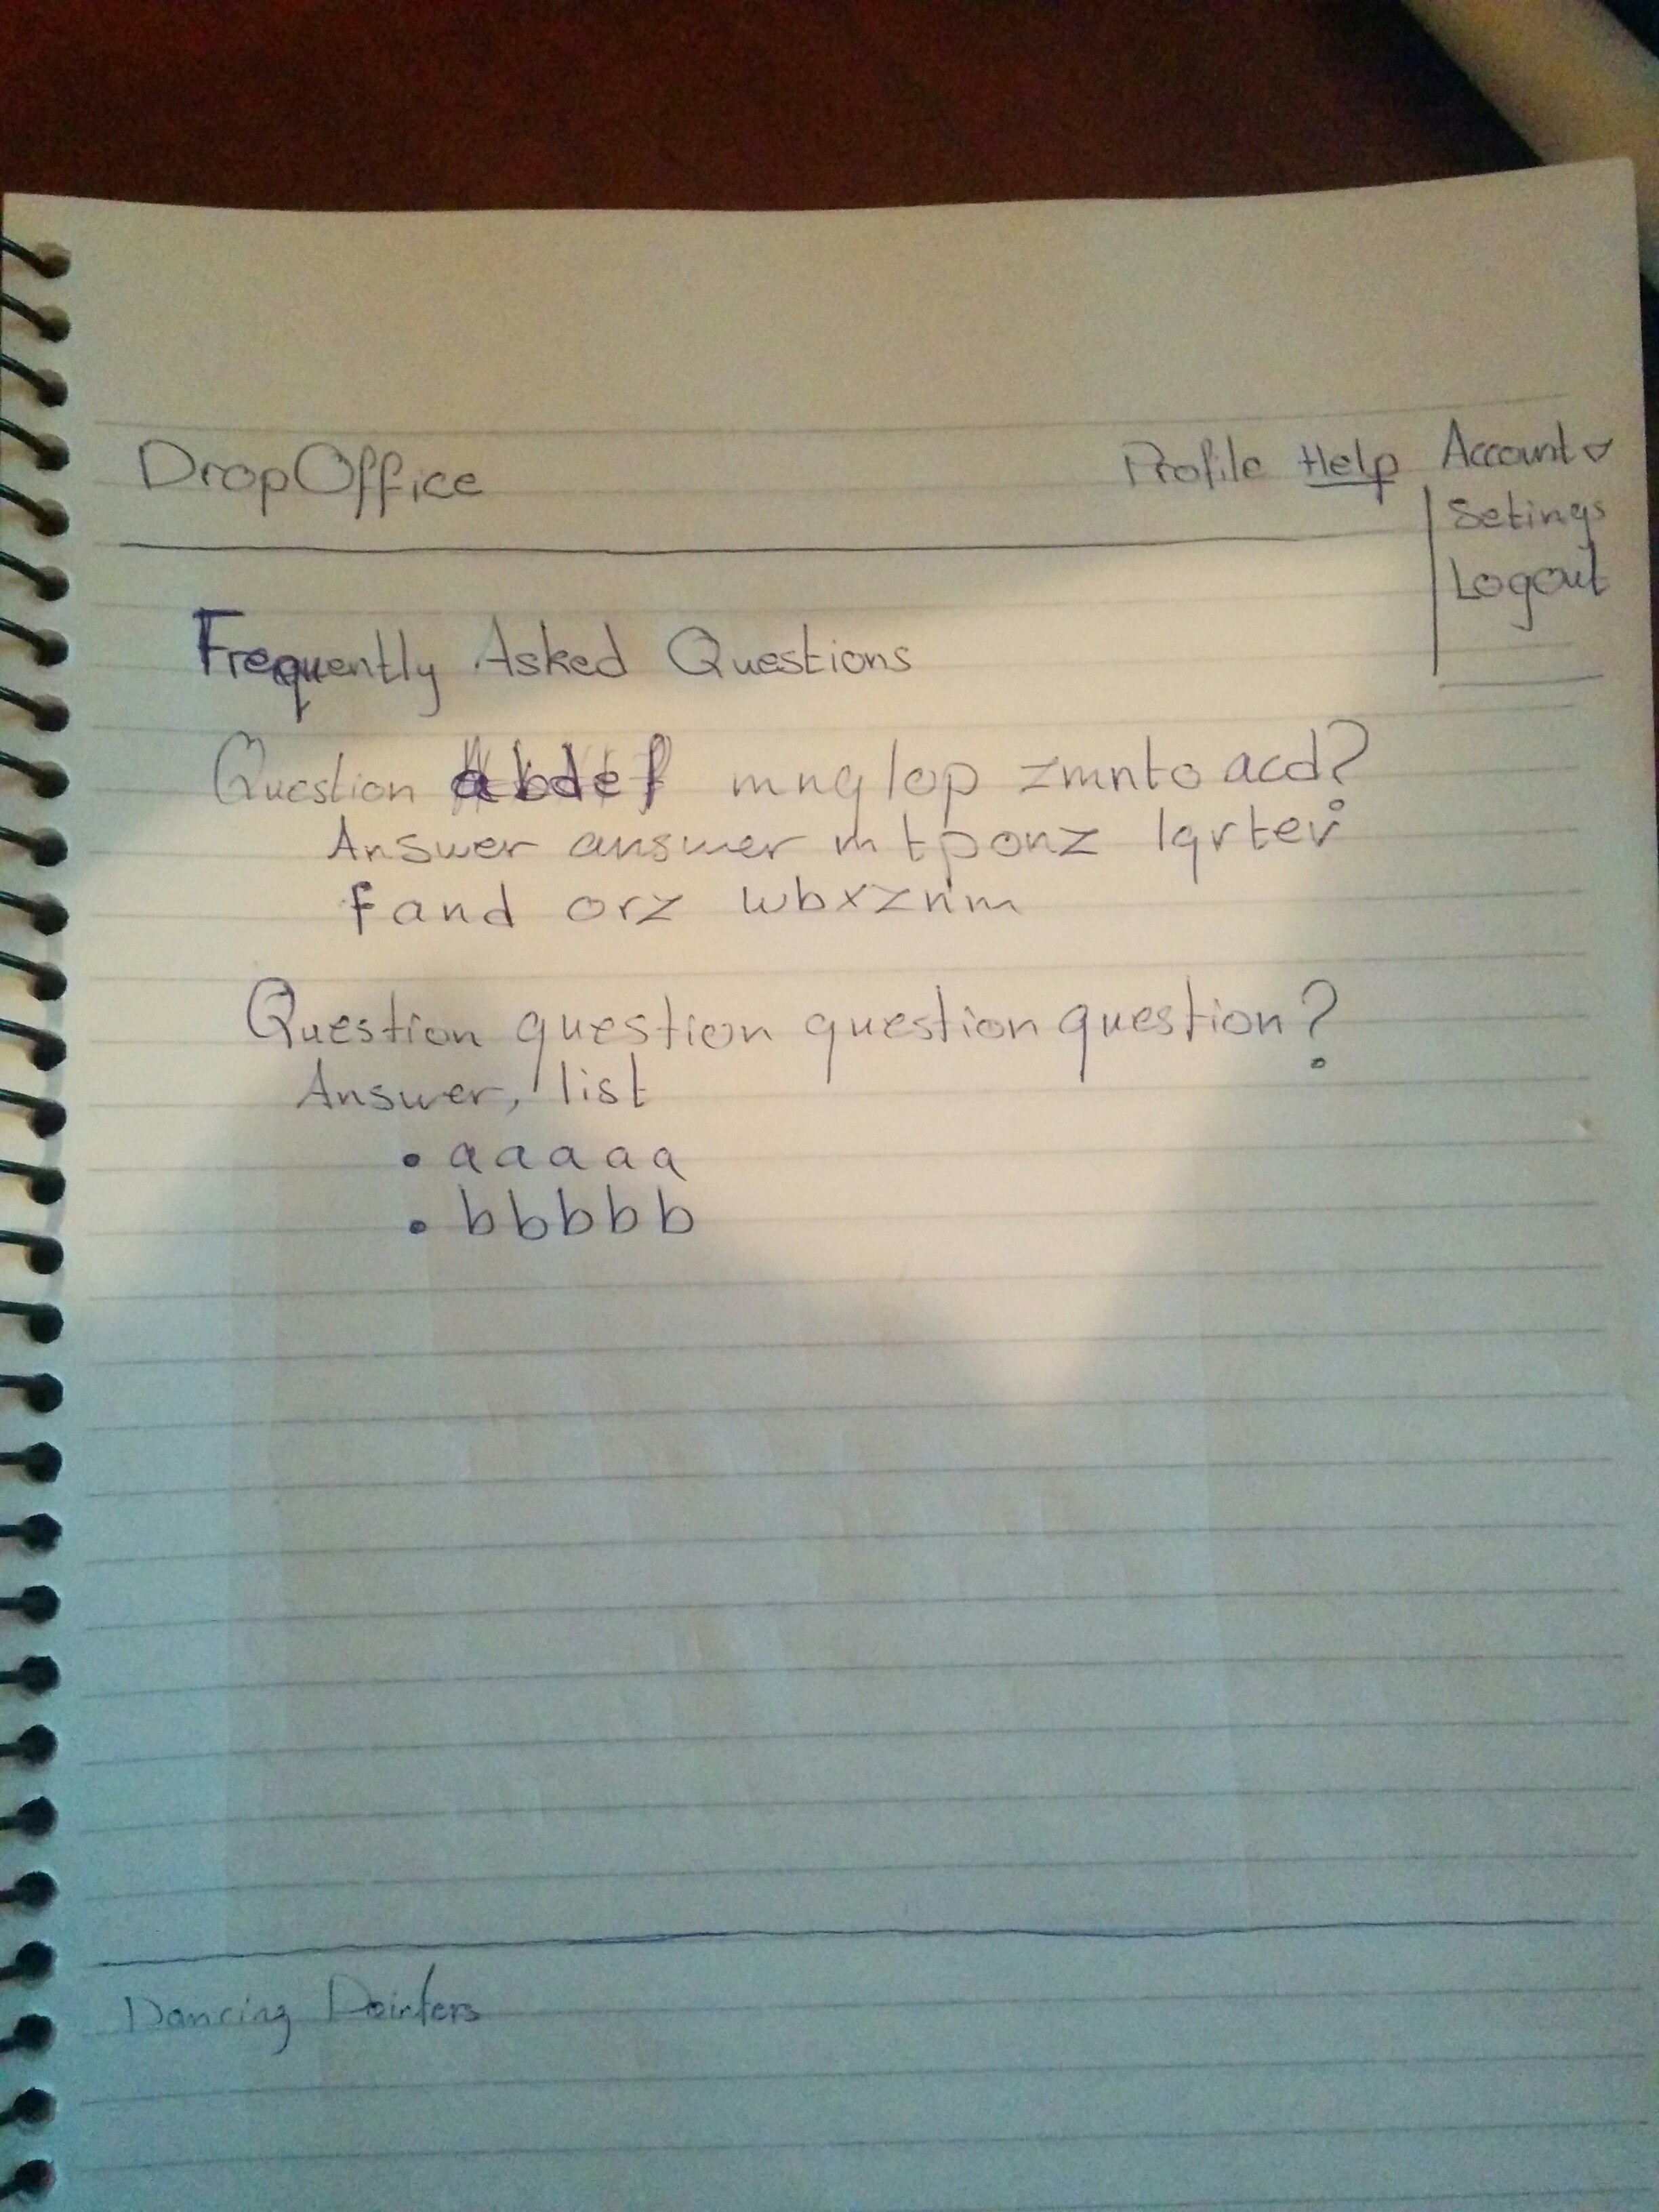 DropOffice
Profile Help Account
Setings
Logout
Frequently Asked Questions
Question abdef mnglop zmnto acd?
Answer answer mtponz lqrter
fand orz wbxznm
Question question question question?
Answer, list
• aaaaa
• bbbbb
Dancing Pointers